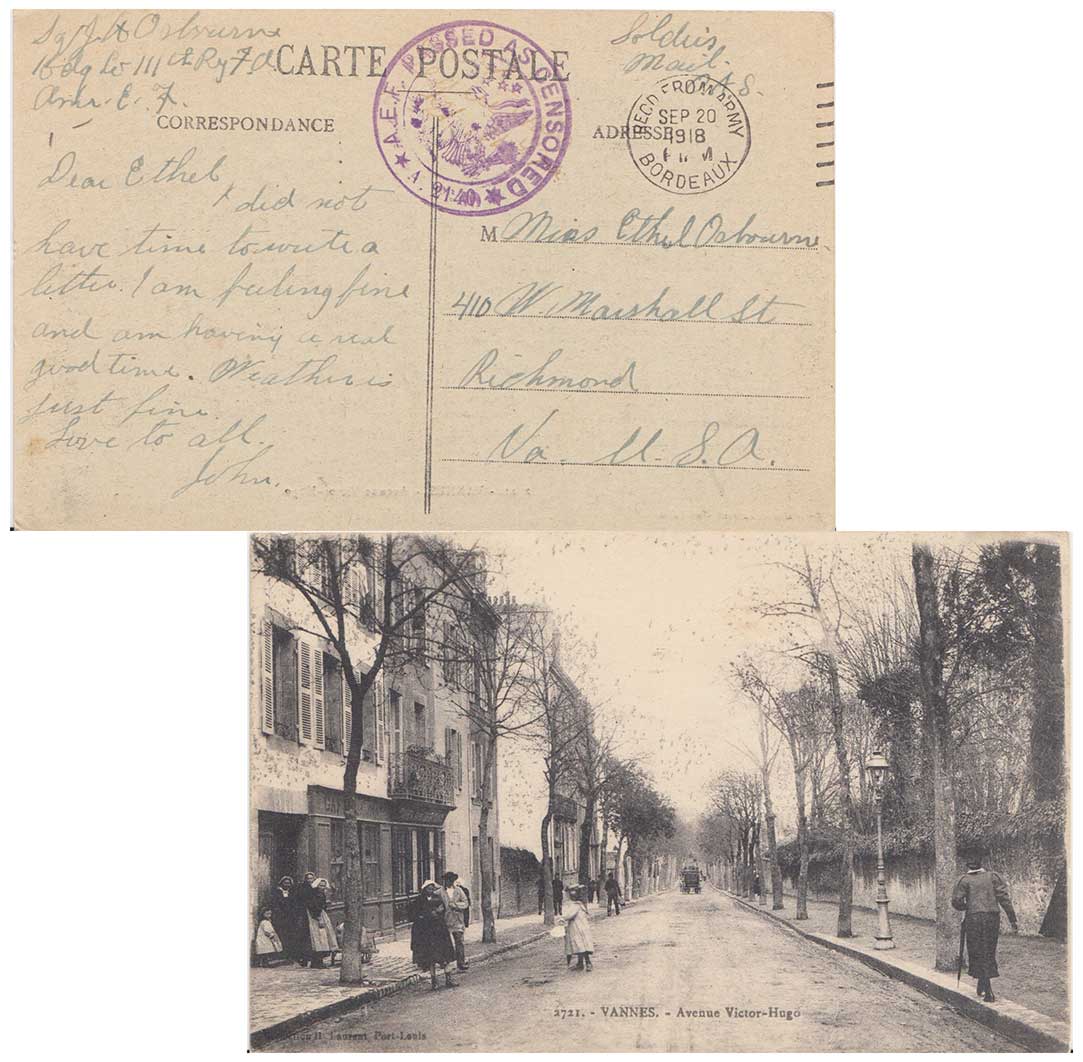 Sg J A Osbourne
Hdq Co 111th Rg F. A.
Am. E. F.
Soldiers
Mail
CARTE POSTALE
A.E.F. PASSED AS CENSORED
A. 2140
CORRESPONDANCE
ADRESSE
REC'D FROM ARMY
SEP 20
1918
BORDEAUX
Dear Ethel
I did not
have time to write a
letter. I am feeling fine
and am having a real
good time. Weather is
just fine.
Love to all.
John.
M Miss Ethel Osbourne.
410 W Marshall St
Richmond
Va - U. S. A.
2721. - VANNES. - Avenue Victor-Hugo
H. Laurent Port-Louis